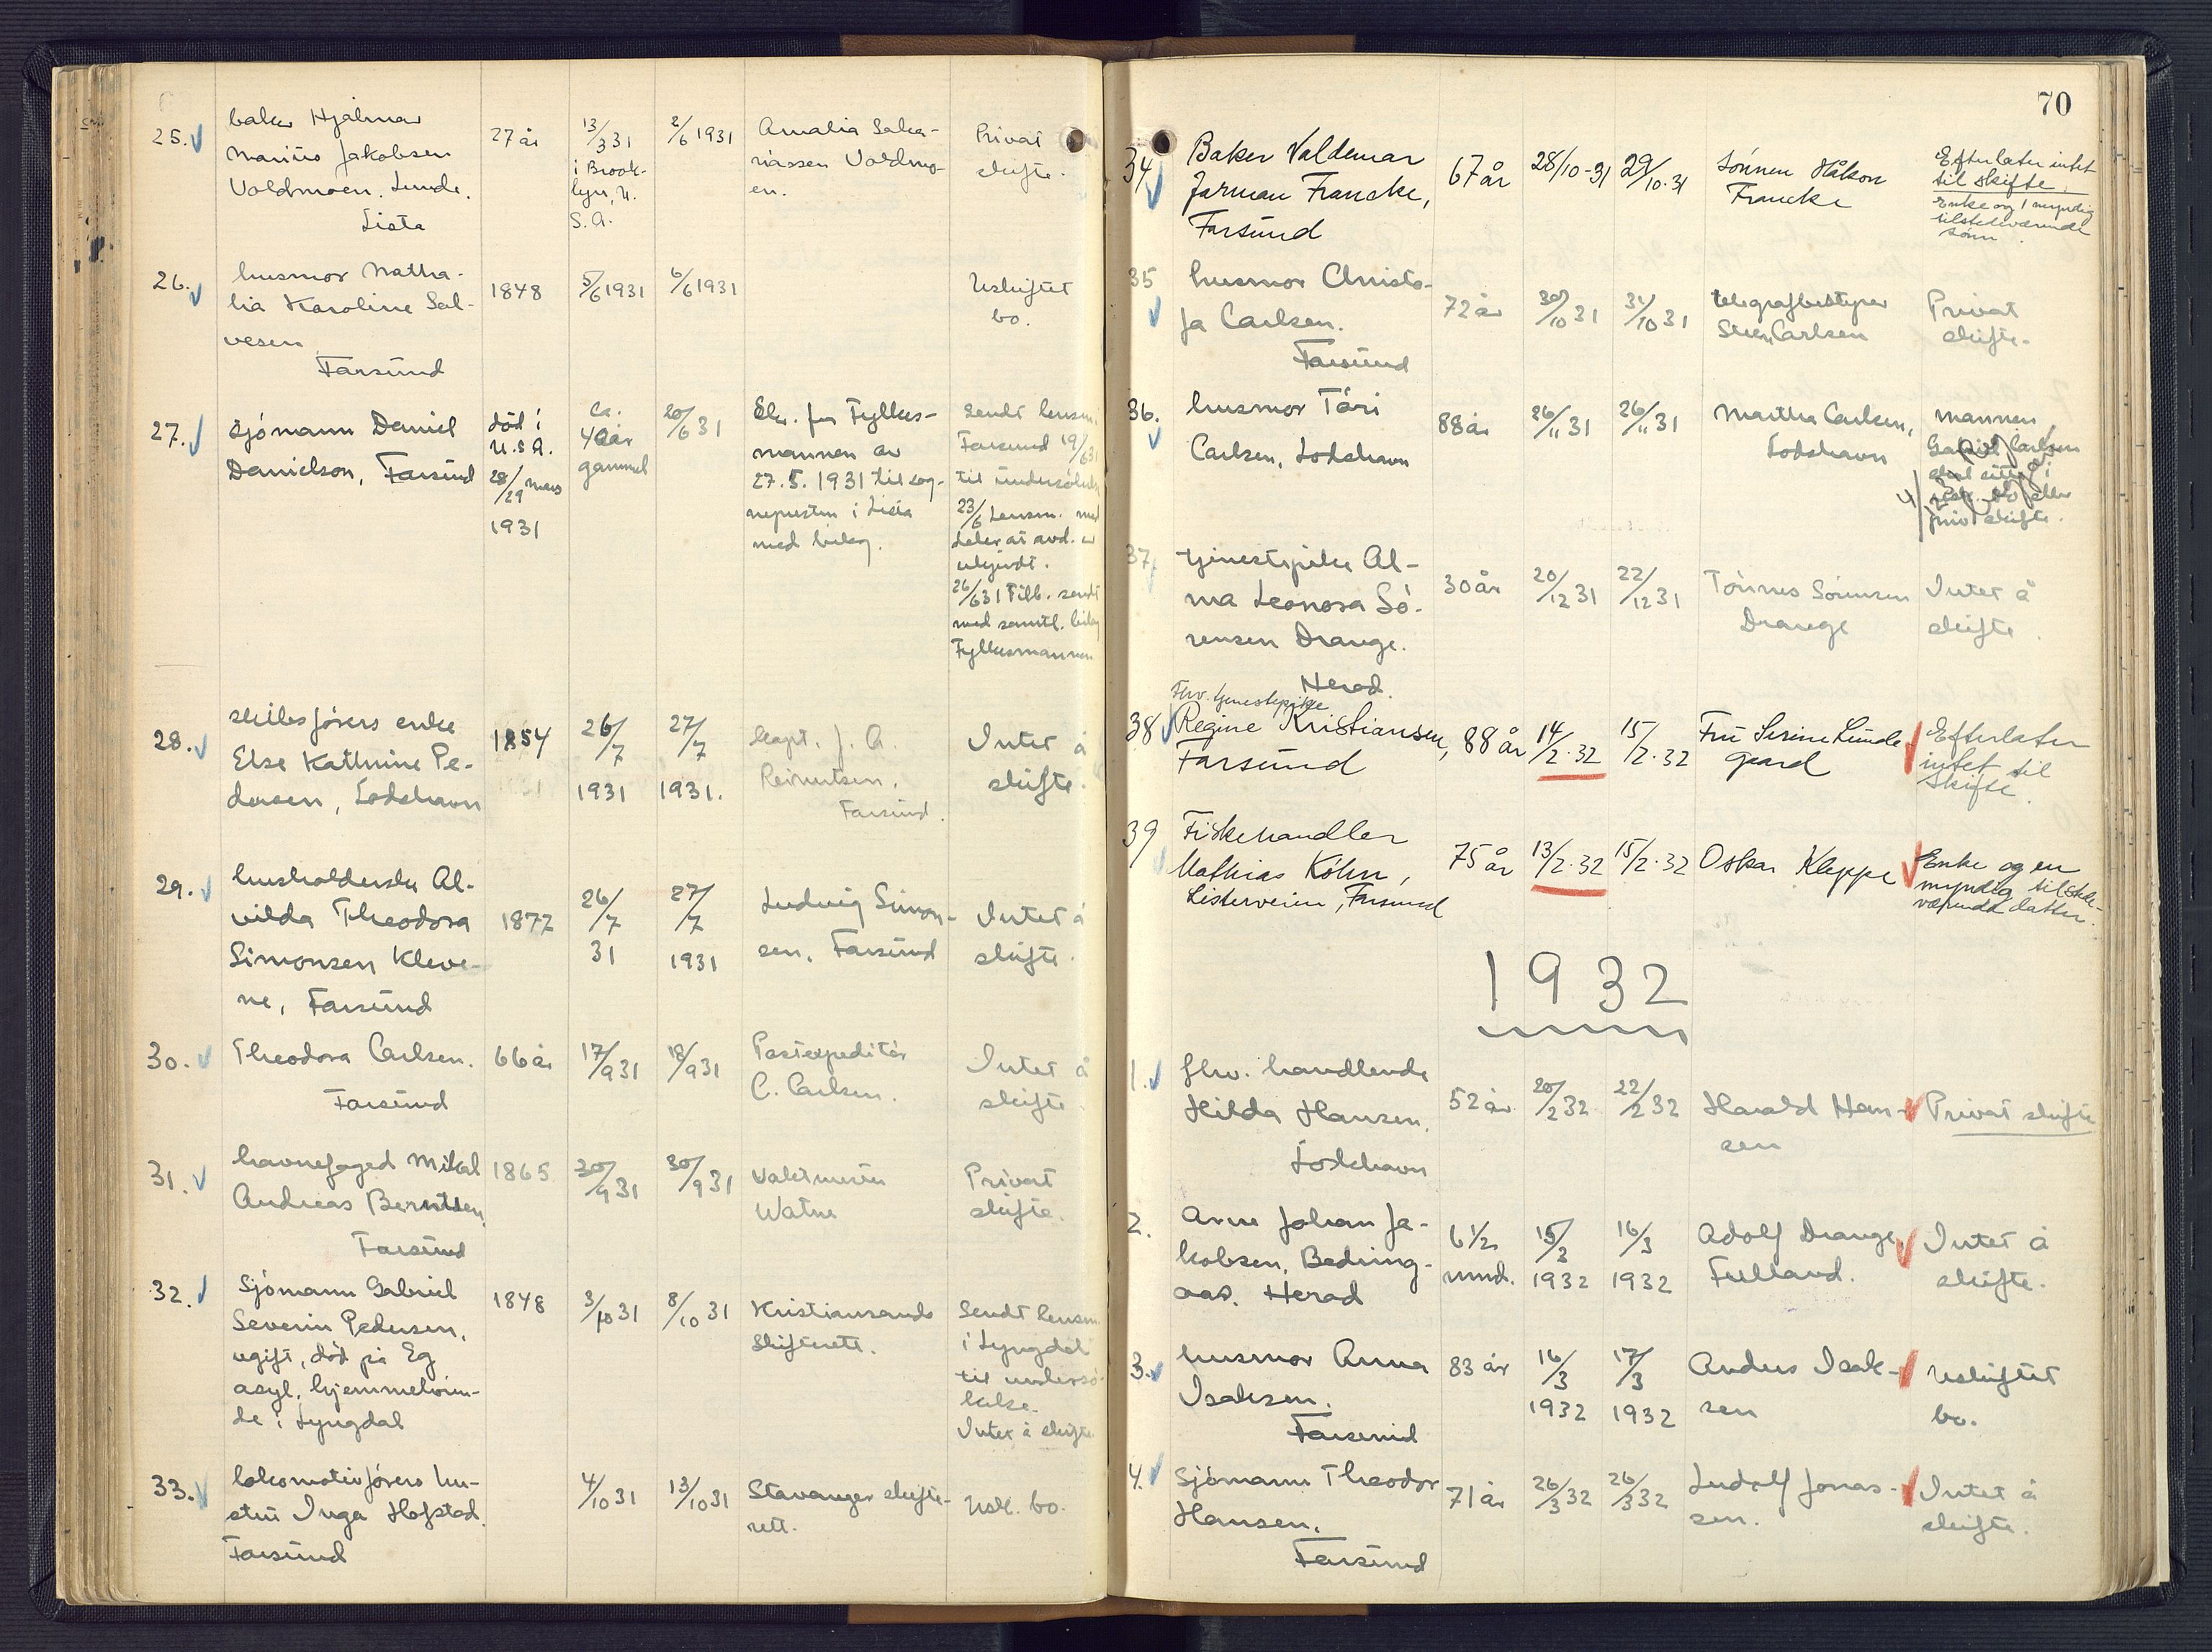 25. baker Hjalmar
Marius Jakobsen
Voldmoen. Lunde.
Lista
27 år
13/3 31
i Brook-
lyn, U.
S.A.
2/6 1931
Amalia Saka-
riassen Voldmo-
en.
Privat
skifte.
26. husmor Natha-
lia Karoline Sal-
vesen
Farsund
1848
5/6 1931
6/6 1931
Uskiftet
bo.
27. sjømann Daniel
Danielson, Farsund
død i
U.S.A.
28/29 mars
1931
ca.
40 år
gammel
20/6 31
Skr. fra Fylkes-
mannen av
27.5.1931 til sog-
nepresten i Lista
med bilag.
Sendt lensm.
Farsund 19/6 31
til undersøkelse
23/6 Lensm. med-
deler at avd. er
ukjendt.
26/6 31 Tilb. sendt
med samtl. bilag
Fylkesmannen
28. skibsførers enke
Else Kathrine Pe-
dersen, Loshavn
1854
26/7
1931
27/7
1931.
kapt. J. A.
Reinertsen.
Farsund.
Intet å
skifte.
29. husholderske Al-
vilda Theodora
Simonsen Kleve-
ne, Farsund
1877
26/7
31
27/7
1931
Ludvig Simon-
sen, Farsund
Intet å
skifte.
30. Theodora Carlsen.
Farsund
66 år
17/9 31
18/9 31
Postexpeditør
C. Carlsen.
Intet å
skifte.
31. havnefoged Mikal
Andreas Berntsen
Farsund
1865
30/9 31
30/9 31
Vaktmester
Watne
Privat
skifte.
32. Sjømann Gabriel
Severin Pedersen,
ugift, død på Eg
asyl, hjemmehøren-
de i Lyngdal
1848
3/10 31
8/10 31
Kristiansands
skifterett.
Sendt lensm.
i Lyngdal
til undersø-
kelse.
Intet å skifte
33. lokomotivførers hu-
stru Inga Hofstad.
Farsund
4/10 31
13/10 31
Stavanger skifte-
rett.
Usk. bo.
70
34 Baker Valdemar
Jarman Francke,
Farsund
67 år
28/10-31
29/10.31
Sønnen Håkon
Francke
Efterlater intet
til skifte.
Enke og 1 myndig
tilstedeværende
sønn.
35 husmor Christo-
fa Carlsen.
Farsund
72 år
30/10 31
31/10 31
telegrafbestyrer
Carlsen
Privat
skifte.
36. husmor Tåri
Carlsen, Loshavn
88 år
26/11 31
26/11 31
Martha Carlsen,
Loshavn
mannen
Gabriel Carlsen
skal sitte i
usk. bo eller
priv. skifte.
37. tjenestpike Al-
ma Leonora Sø-
rensen Drange.
Herad.
30 år
20/12 31
22/12 31
Tønnes Sørensen
Drange
Intet å
skifte.
Fhv. tjenestepike
38 Regine Kristiansen,
Farsund
88 år
14/2.32
15/2.32
Fru Serine Lunde-
gaard
Efterlater
intet til
skifte.
39 Fiskehandler
Mathias Köhn,
Listerveien, Farsund
75 år
13/2.32
15/2.32
Oskar Kleppe
Enke og en
myndig tilstede-
værende datter.
1932
1. fhv. handlende
Hilda Hansen.
Loshavn
52 år
20/2 32
22/2 32
Harald Han-
sen
Privat skifte
2. Arne Johan Ja-
kobsen, Bedring-
aas. Herad
6 1/2
mnd.
15/3
1932
16/3
1932
Adolf Drange
Fulland.
Intet å
skifte.
3. husmor Anna
Isaksen.
Farsund
83 år
16/3
1932
17/3
1932
Anders Isak-
sen
Uskiftet
bo.
4. Sjømann Theodor
Hansen.
Farsund
71 år
26/3 32
26/3 32
Ludolf Jonas-
sen.
Intet å
skifte.